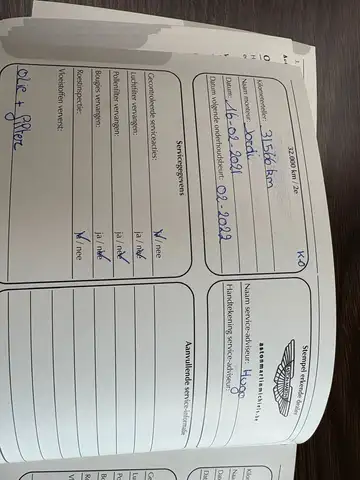 32.000 km / 2e
KD
Kilometerteller: 31566 km
Naam monteur: Jordi
Datum: 16-02-2021
Datum volgende onderhoudsbeurt: 02-2022
Stempel erkende dealer
astonmartinmichiels.be
Naam service-adviseur: Hugo
Handtekening service-adviseur:
Servicegegevens
Gecontroleerde serviceacties: ja / nee
Luchtfilter vervangen: ja / nee
Pollenfilter vervangen: ja / nee
Bougies vervangen: ja / nee
Roestinspectie: ja / nee
Vloeistoffen ververst:
Olie + filter
Aanvullende service-informatie